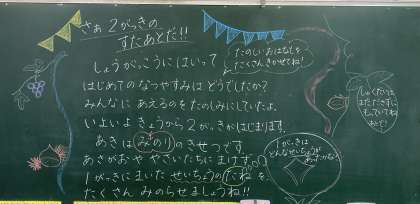 さぁ 2がっきの
すたあとだ!!
しょうがっこうにはいって
はじめてのなつやすみは どうでしたか?
みんなに あえるのを たのしみにしていたよ。
いよいよ きょうから 2がっきが はじまります。
あきは みのり の きせつです。
あさがおや やさいたちに まけずに
1がっきにまいた せいちょうのたねを
たくさん みのらせましょうね!!
たのしいおはなしを
たくさんきかせてね!
しゅくだいは
まだださずに
もっていてね
1がっきは
どんなせいちょうが
あったかな?